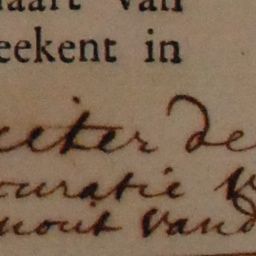 aart van
eekent in
uiter de
curatie v
mout vand